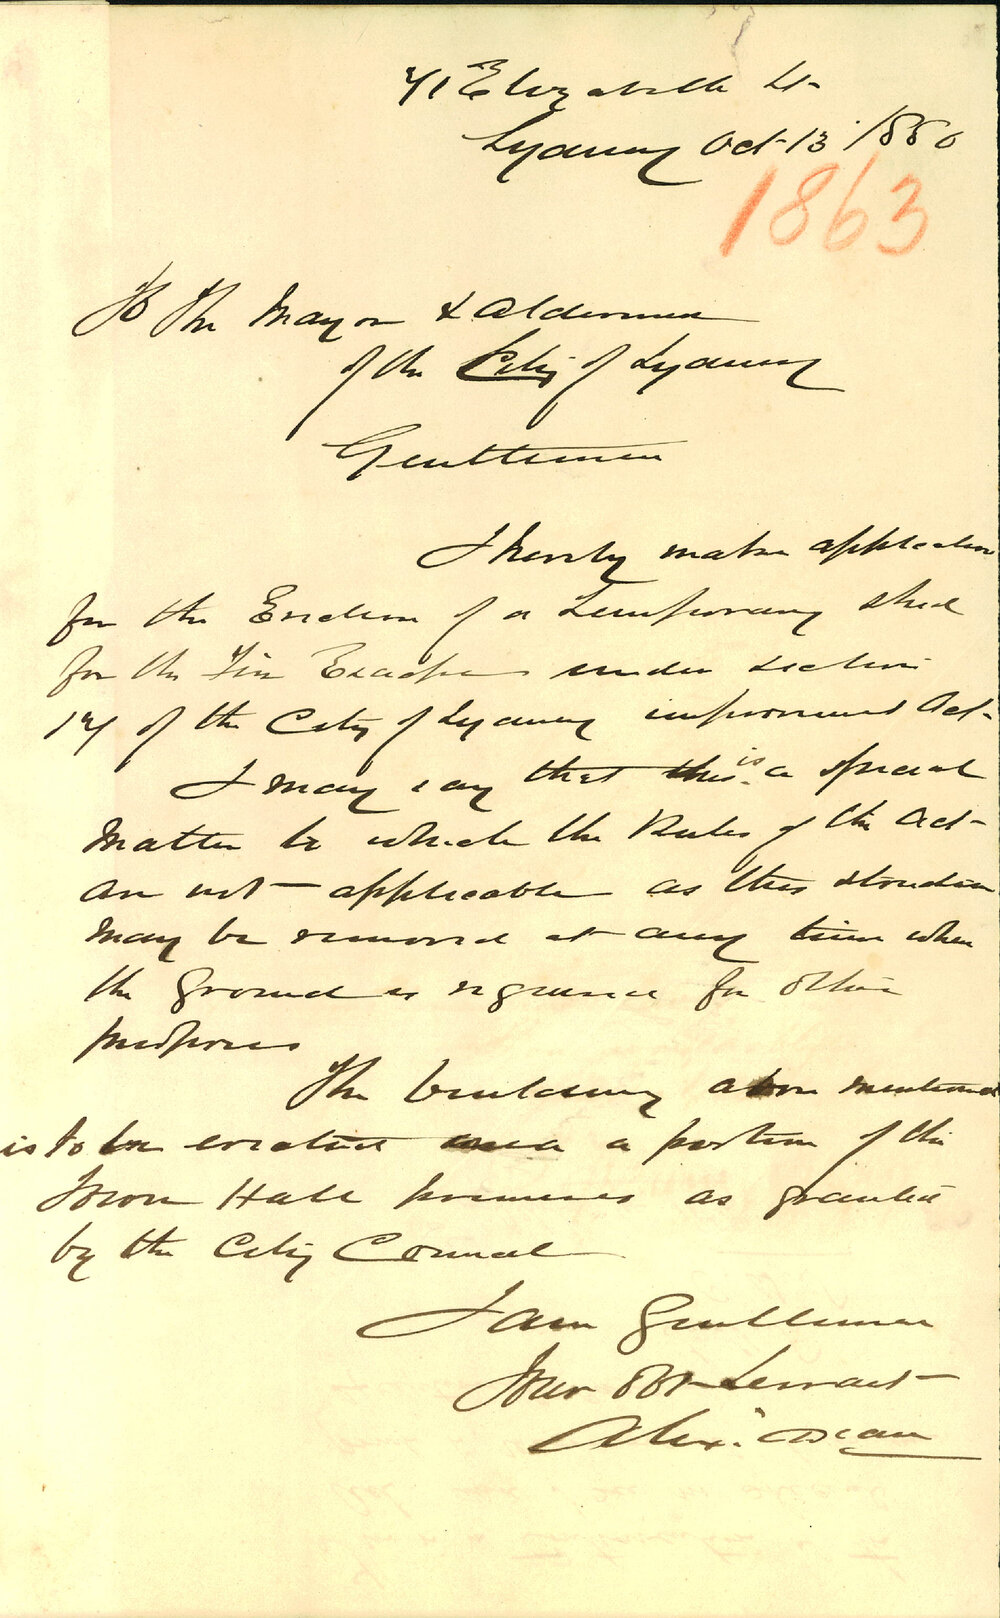 71 Elizabeth St
Sydney Oct 13 1880
1863
To The Mayor & Aldermen
of the City of Sydney
Gentlemen
I hereby make application
for the Erection of a Temporary shed
for the Fire Escapes under section
17 of the City of Sydney improvement Act
I may say that this is a special
Matter to which the Rules of the Act
are not applicable as this structure
may be removed at any time when
the ground is required for other
purposes
The building above mentioned
is to be erected a portion of the
Town Hall premises as granted
by the City Council
I am Gentlemen
Your Obt Servant
Alex. Dean